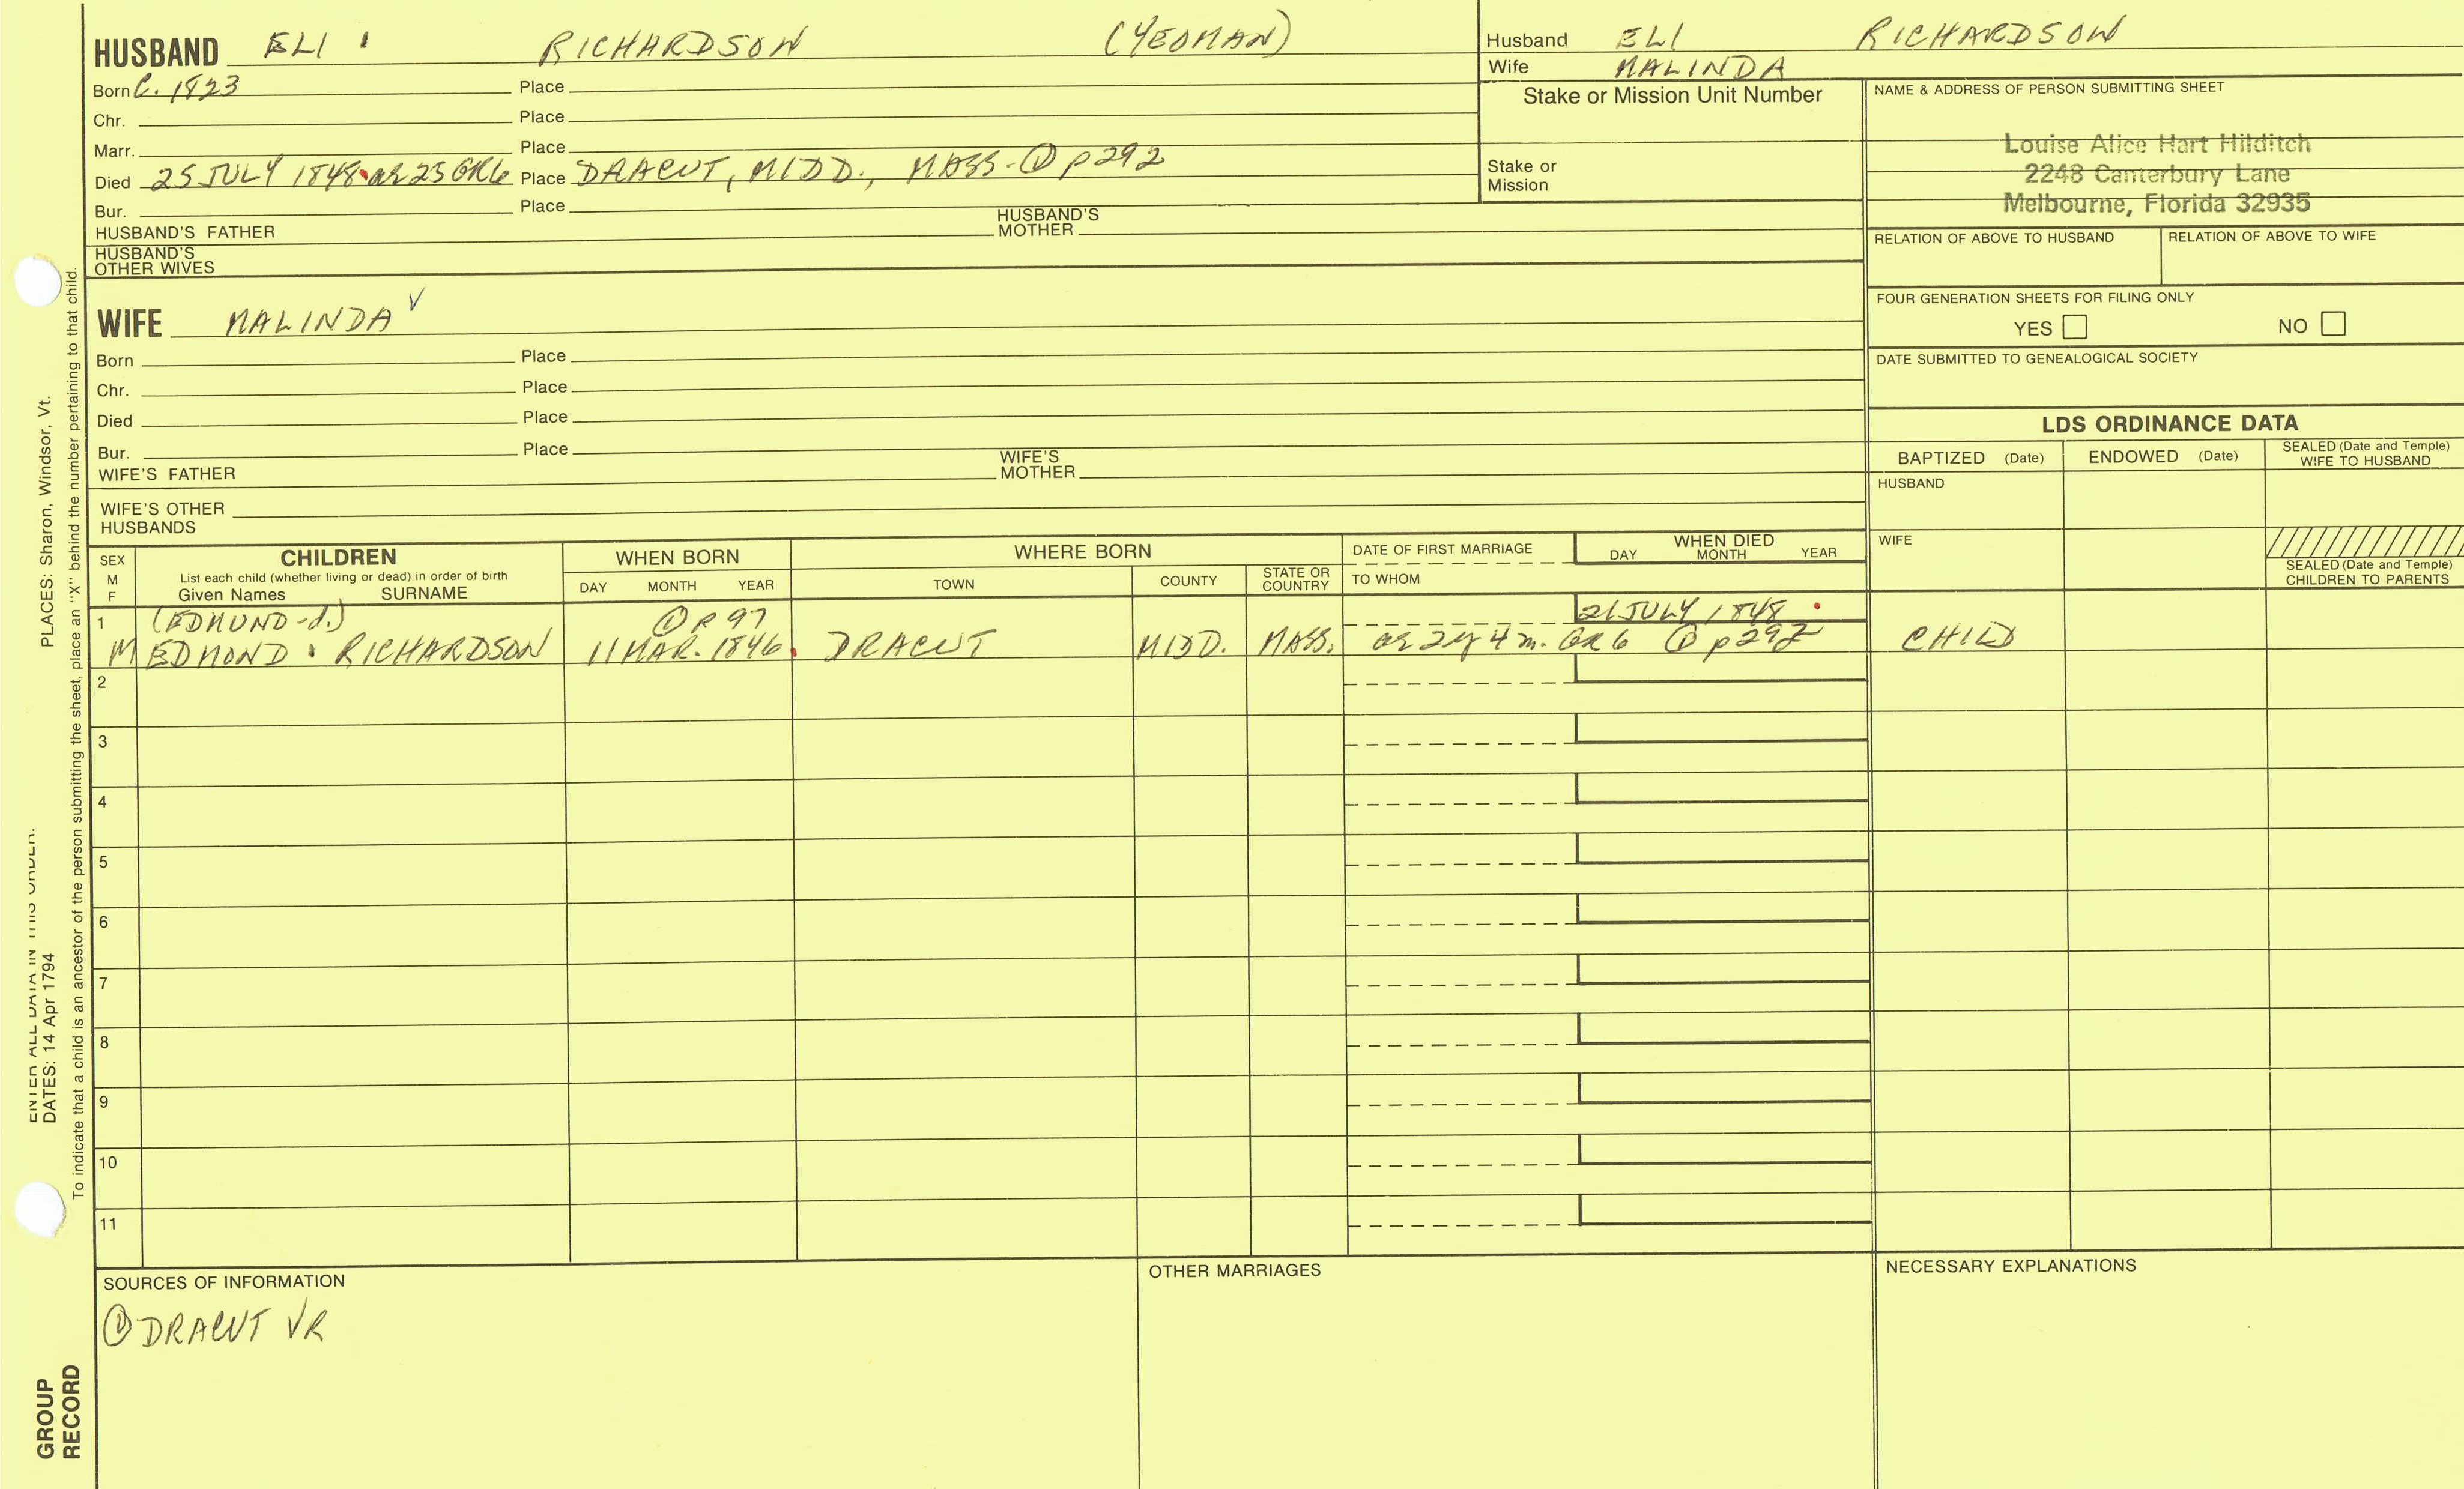 HUSBAND ELI RICHARDSON (YEOMAN)
Born C. 1823 Place
Chr. Place
Marr. Place
Died 25 JULY 1848 ae 25 GR6 Place DRACUT, MIDD., MASS. ① p 292
Bur. Place
HUSBAND'S FATHER HUSBAND'S MOTHER
HUSBAND'S OTHER WIVES
WIFE MALINDA √
Born Place
Chr. Place
Died Place
Bur. Place
WIFE'S FATHER WIFE'S MOTHER
WIFE'S OTHER HUSBANDS
Husband ELI RICHARDSON
Wife MALINDA
Stake or Mission Unit Number
Stake or Mission
NAME & ADDRESS OF PERSON SUBMITTING SHEET
Louise Alice Hart Hilditch
2248 Canterbury Lane
Melbourne, Florida 32935
RELATION OF ABOVE TO HUSBAND RELATION OF ABOVE TO WIFE
FOUR GENERATION SHEETS FOR FILING ONLY
YES NO
DATE SUBMITTED TO GENEALOGICAL SOCIETY
LDS ORDINANCE DATA
BAPTIZED (Date) ENDOWED (Date) SEALED (Date and Temple) WIFE TO HUSBAND
HUSBAND
WIFE
SEALED (Date and Temple) CHILDREN TO PARENTS
SEX M F
CHILDREN
List each child (whether living or dead) in order of birth
Given Names SURNAME
WHEN BORN
DAY MONTH YEAR
WHERE BORN
TOWN COUNTY STATE OR COUNTRY
DATE OF FIRST MARRIAGE
TO WHOM
WHEN DIED
DAY MONTH YEAR
1 (EDMUND-d.) ① p 97 21 JULY 1848
M EDMOND RICHARDSON 11 MAR. 1846 DRACUT MIDD. MASS. ae 2y 4m. GR6 ① p 292 CHILD
2
3
4
5
6
7
8
9
10
11
SOURCES OF INFORMATION
① DRACUT VR
OTHER MARRIAGES
NECESSARY EXPLANATIONS
ENTER ALL DATA IN THIS ORDER:
DATES: 14 Apr 1794 PLACES: Sharon, Windsor, Vt.
To indicate that a child is an ancestor of the person submitting the sheet, place an "X" behind the number pertaining to that child.
GROUP
RECORD